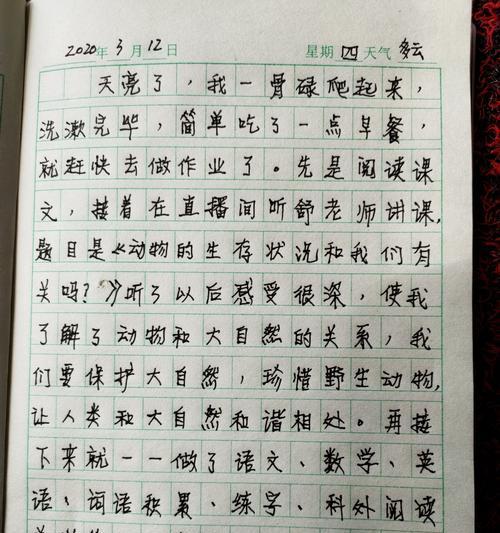 2020年3月12日 星期四天气多云
天亮了，我一骨碌爬起来，
洗漱完毕，简单吃了一点早餐，
就赶快去做作业了。先是阅读课
文，接着在直播间听舒老师讲课，
题目是《动物的生存状况和我们有
关吗？》听了以后感受很深，使我
了解了动物和大自然的关系，我
们要保护大自然，珍惜野生动物，
让人类和大自然和谐相处。再接
下来就一一做了语文、数学、英
语、词语积累、练字、科外阅读